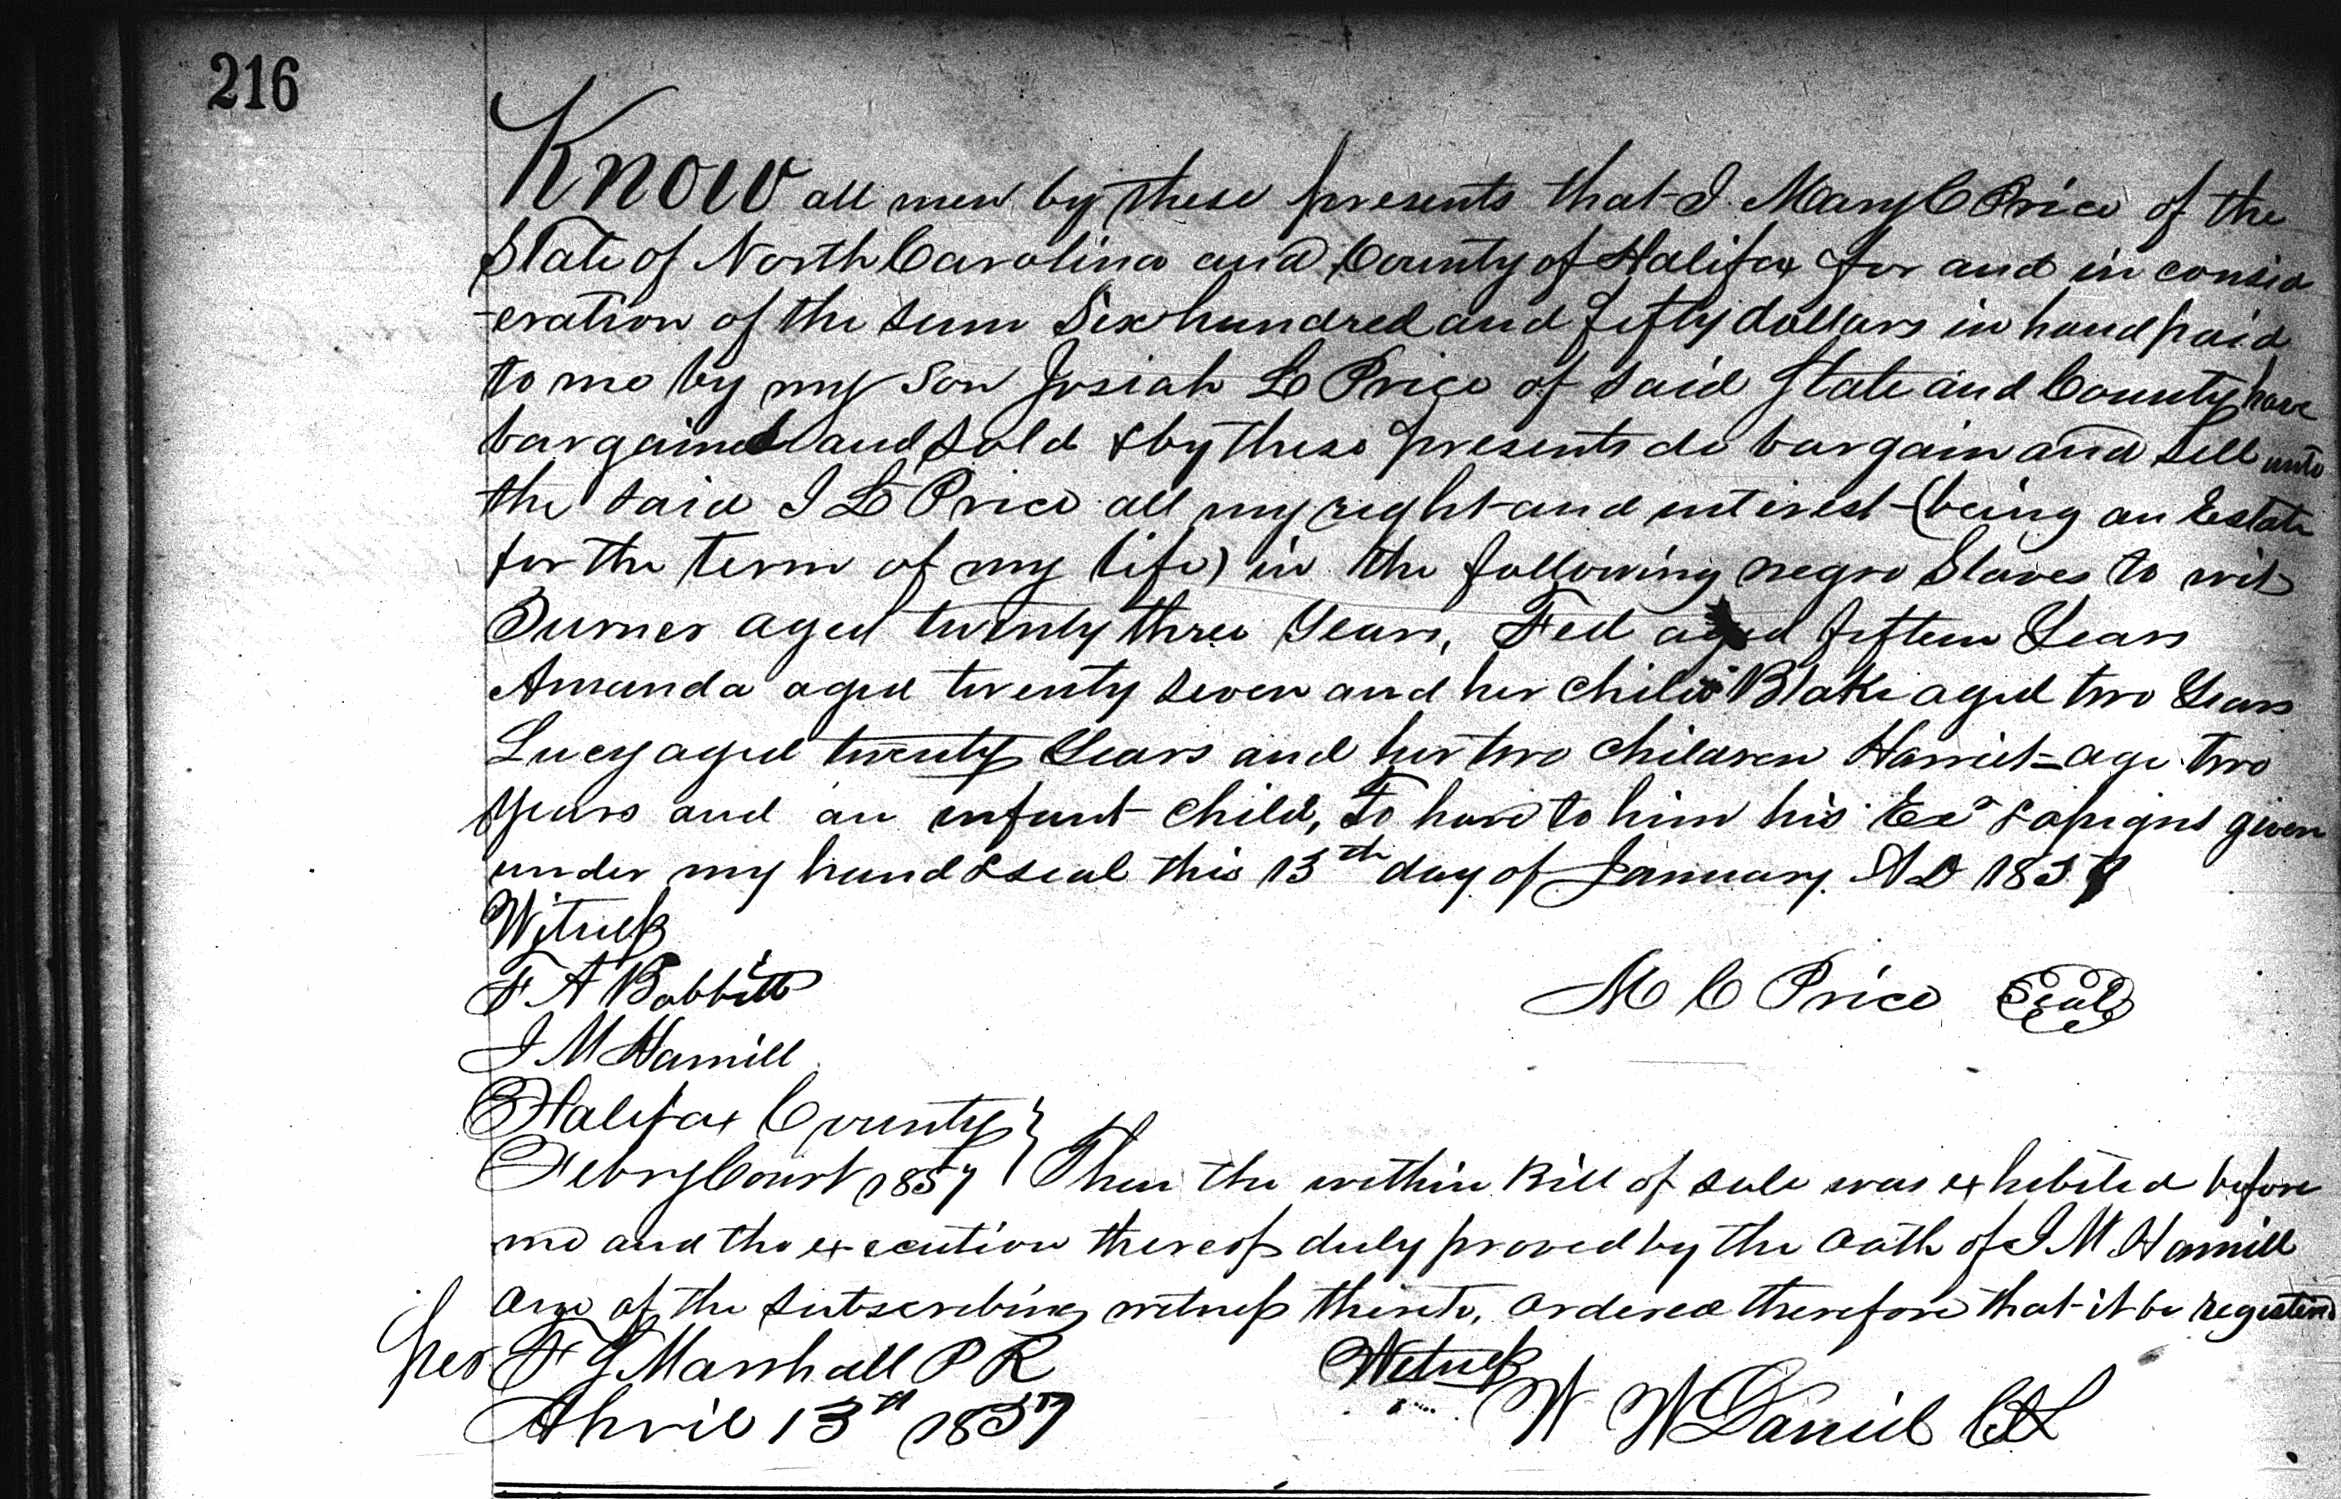 216
Know all men by these presents that I Mary C Price of the
State of North Carolina and County of Halifax for and in consid
-eration of the sum Six hundred and fifty dollars in hand paid
to me by my son Josiah L Price of said State and County have
bargained and sold & by these presents do bargain and sell unto
the said J L Price all my right and interest (being an Estate
for the term of my life) in the following negro Slaves to wit
Turner aged twenty three Years, Fed aged fifteen Years
Amanda aged twenty seven and her child Blake aged two Years
Lucy aged twenty Years and her two children Harriet - age two
Years and an infant child, To have to him his Exr & assigns given
under my hand & seal this 13th day of January. AD 1857
Witness
F. A Bobbitt
M C Price Seal
J M Hamill
Halifax County }
Febry Court 1857 } Then the within Bill of sale was exhibited before
me and the execution thereof duly proved by the oath of J M Hamill
one of the subscribing witness thereto, ordered therefore that it be registered
per F G Marshall P R
Witness
April 13th 1857
W W Daniel Clk